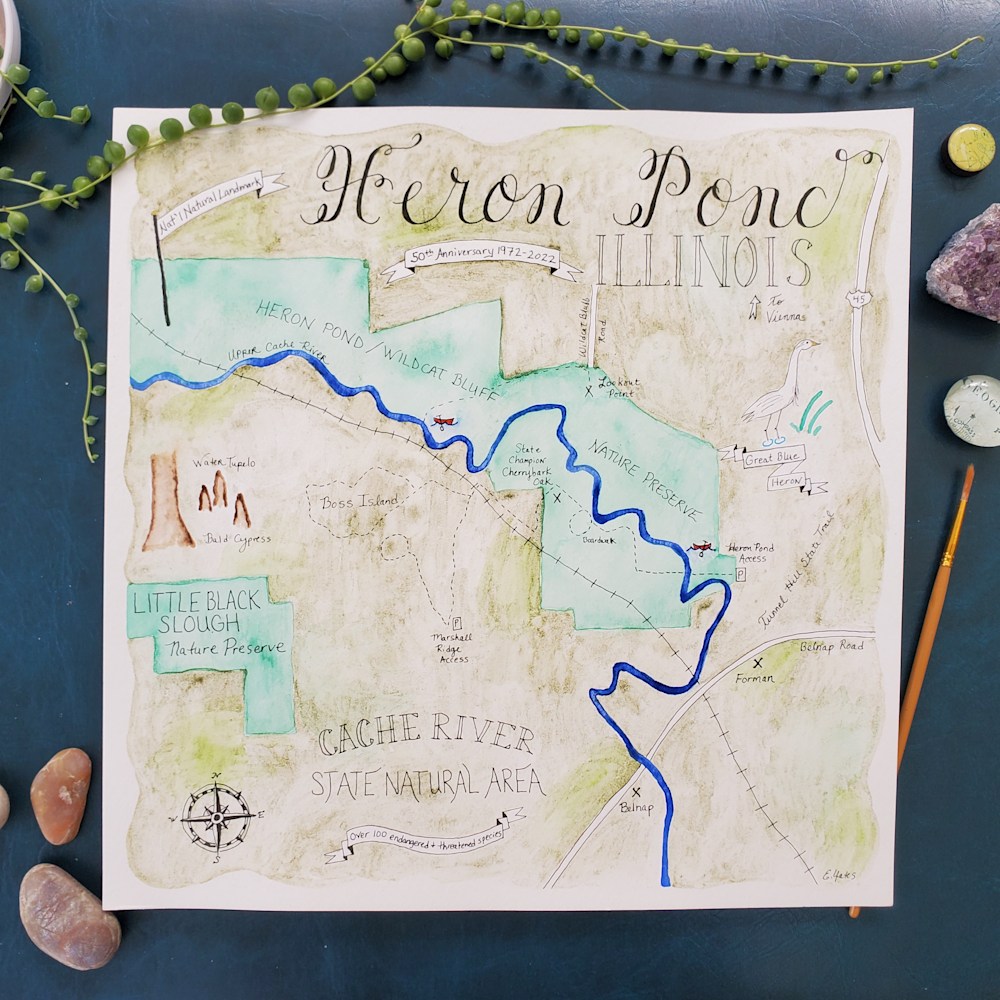 Heron Pond
ILLINOIS
Nat'l Natural Landmark
50th Anniversary 1972-2022
45
to
Vienna
Wildcat Bluff
Road
HERON POND / WILDCAT BLUFF
NATURE PRESERVE
Upper Cache River
Lookout
Point
X
State
Champion
Cherrybark
Oak
X
Great Blue
Heron
Water Tupelo
Bald Cypress
Boss Island
Boardwalk
Heron Pond
Access
P
Tunnel Hill State Trail
LITTLE BLACK
SLOUGH
Nature Preserve
P
Marshall
Ridge
Access
Belnap Road
X
Forman
CACHE RIVER
STATE NATURAL AREA
X
Belnap
Over 100 endangered + threatened species
N
E
S
E. Yates